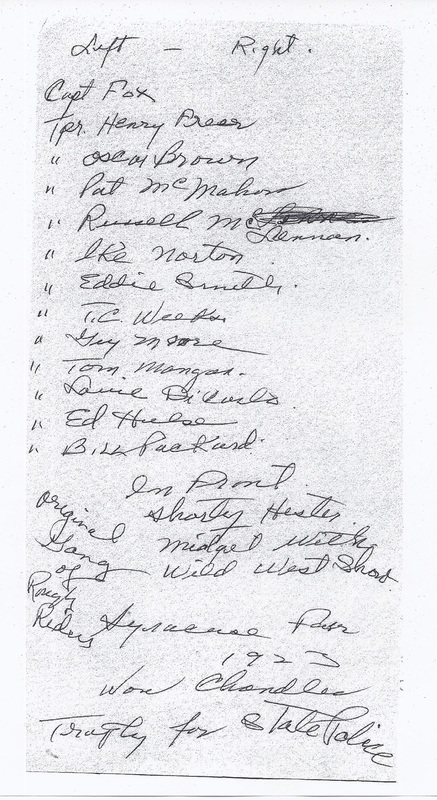 Left — Right.
Capt Fox
Tpr. Henry Freer
" Oscar Brown
" Pat McMahon
" Russell Mc
Lennan.
" Ike Norton
" Eddie Smith.
" T.C. Weeks
" Guy Moore
" Tom Mangan.
" Louie DiCarlo
" Ed Hulse
" Bill Packard.
In Front.
Shorty Hester
Midget with
Wild West Show.
Original
Gang
of
Rough
Riders
Syracuse Fair
1923
Won Chandler
Trophy for State Police